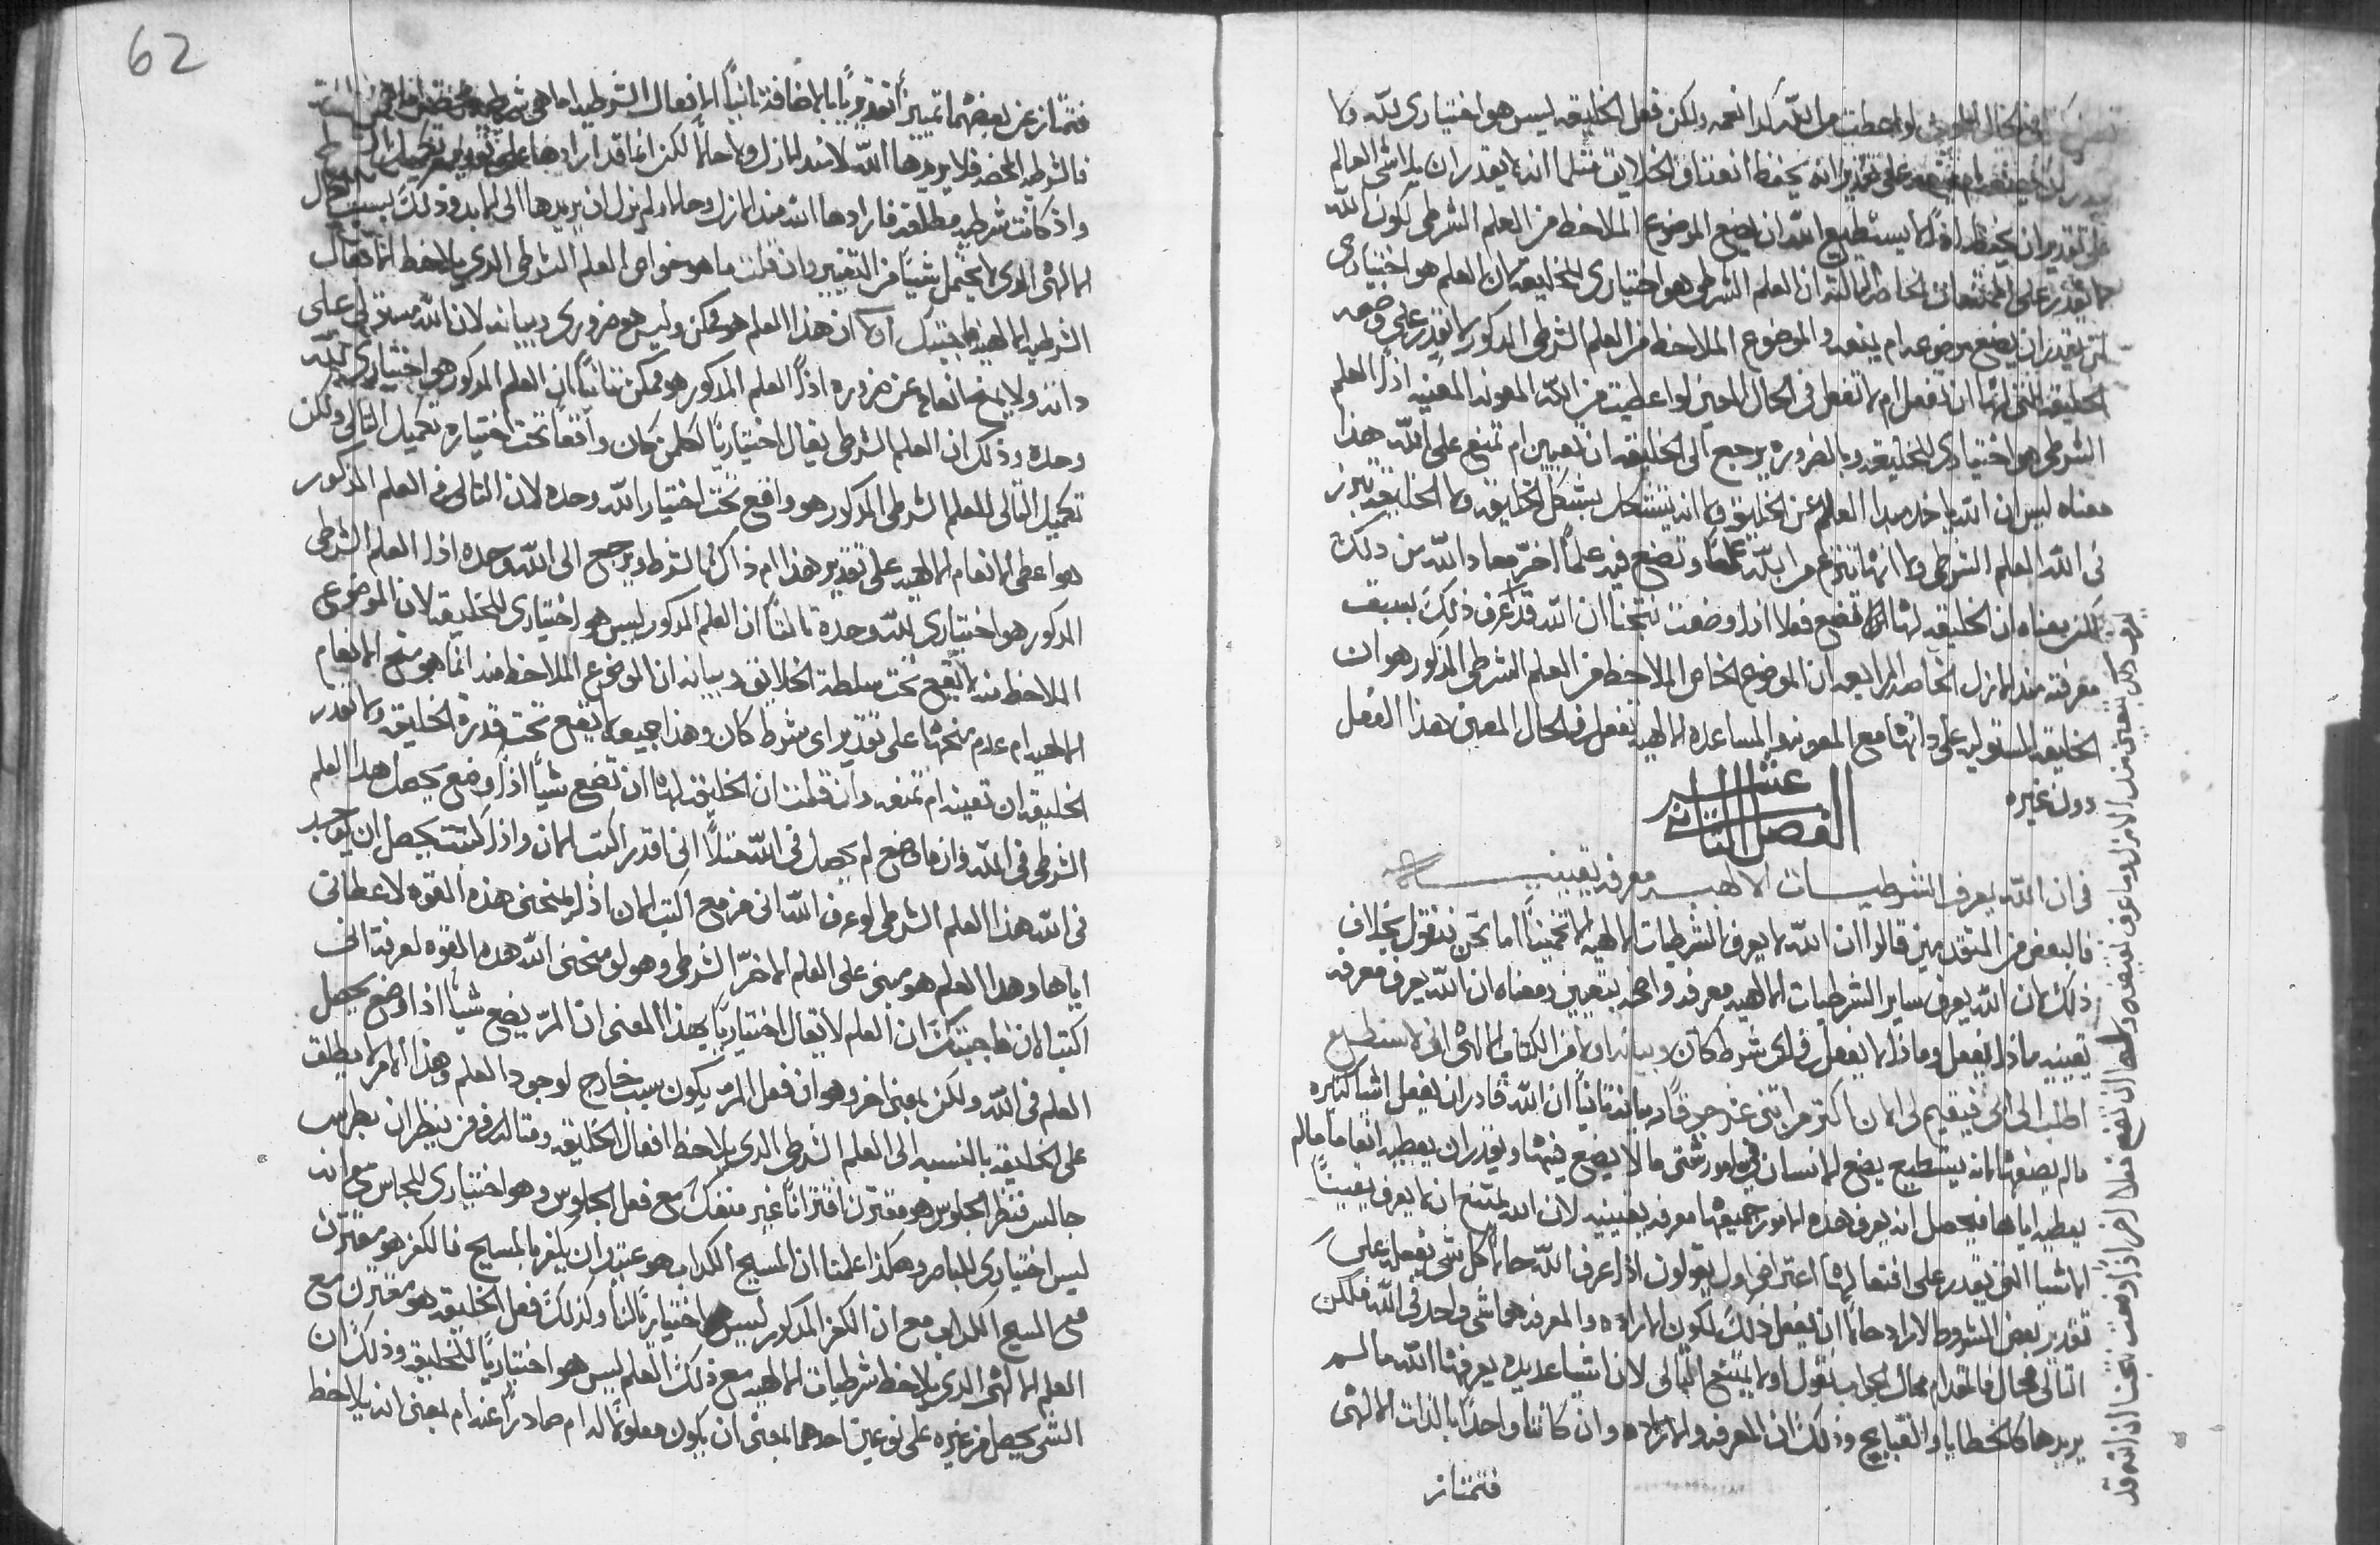 في الحال الفلاني لو اعطيت من الله كذا نعمه ولكن فعل الخليقه ليس هو اختياري لله ولا
يقدر ان يمنعه على تقدير انه يحفظ انعتاق الخلايق مثلما انه لا يقدر ان يلاشي العالم
على تقدير ان يحفظه اذًا لا يستطيع الله ان يضع الموضوع الملاحظ من العلم الشرطي لكون الله
لا يقدر على الممتنعات الخاصه الثالثه ان العلم الشرطي هو اختياري للخليقه لان العلم هو اختياري
لمن يقدر ان يضع موضوعه ام يمنعه والموضوع الملاحظ من العلم الشرطي المذكور لا يقدر على وضعه
الخليقه التي لها ان تفعل ام لا تفعل في الحال المعين لو اعطيت من الله المعونه المعينه اذًا العلم
الشرطي هو اختياري للخليقه وبالضروره يرجع الى الخليقه ان تعين ام تمنع على الله هذا
معناه ليس ان الله ياخذ هذا العلم عن الخليقه ولا انه يتشكل بشكل الخليقه ولا الخليقه تبرز
في الله العلم الشرطي ولا انها تنزع من الله علمًا وتضع فيه علمًا اخر معاد الله من ذلك
لكن معناه ان الخليقه لها ان تضع فعلا اذا وضعت نتجنا ان الله قد عرف ذلك بسبق
معرفته منذ الازل الخاصه الرابعه ان الموضوع الخاص الملاحظ من العلم الشرطي المذكور هو ان
الخليقه المستوليه على ذاتها مع المعونه والمساعده الالهيه تفعل في الحال المعين هذا الفعل
دون غيره
الفصل الثاني عشر
في ان الله يعرف الشرطيات الالهيه معرفه يقينيه
فالبعض من المتقدمين قالوا ان الله لا يعرف الشرطيات الالهيه الا تخمينًا اما نحن فنقول بخلاف
ذلك ان الله يعرف ساير الشرطيات الالهيه معرفه واضحه بتعيين ومعناه ان الله يعرف معرفه
يقينيه ماذا يفعل وماذا لا يفعل في اي شرط كان وبيانه اولا من الكتاب الالهي اني لا استطيع
اطلب الى ابي فيقيم لي الان اكثر من اثني عشر جوقًا وبيانه ثانيًا ان الله قادر ان يفعل اشيا كثيره
مالم يصنعها لانه يستطيع يضع الانسان في امور شتى ما لا يضع فيها ويقدر ان يعطيه انعاما مالم
يعطيه اياها فيحصل انه يعرف هذه الامور جميعها معرفه يقينيه لان الله يمتنع ان لا يعرف يقينًا
الاشيا التي يقدر على افتعالها اعتراض اول يقولون اذا عرف الله حالًا كل شي يفعل على
تقدير بعض الشروط لاراد حالًا ان يفعل ذلك لكون الاراده والمعرفه هما شي واحد في الله فلكن
التالي محال فالمقدم محال الجواب نقول اولا يمتنع التالي لان اشيا عديده يعرفها الله مالم
يريدها كالخطايا والقبايح وذلك ان المعرفه والاراده وان كانتا واحدًا بالذات الالهي
فتمتاز
62
فتمتاز عن بعضهما تمييزًا تقديريًا بالاضافه ثانيًا الافعال الشرطيه اما هي شرطيه محضه
فالشرطيه المحضه فلا يريدها الله لا منذ الازل ولا حالًا لكن انما قد ارادها على تقدير تكميل
واذ كانت شرطيه مطلقه فارادها الله منذ الازل وحالًا ولم يزل ان يريدها الى الابد وذلك بسبب الحال
الالهي الذي لا يحتمل شيًا من التغيير وان قلت ما هو خواص العلم الشرطي الذي يلاحظ الافعال
الشرطيه الالهيه فاجيبك اولًا ان هذا العلم هو ممكن وليس هو ضروري وبيانه لان الله مستولي على
ذاته ولا يمنح انعامه عن ضروره اذًا العلم المذكور هو ممكن ثانيًا ان العلم المذكور هو اختياري لله
وحده وذلك ان العلم الشرطي يقال اختياريًا لكلمن كان واقعًا تحت اختياره تكميل التالي ولكن
تكميل التالي للعلم الشرطي المذكور هو واقع تحت اختيار الله وحده لان التالي في العلم المذكور
هو اعطى الانعام الالهيه على تقدير هذا ام ذاك الشرط ويرجع الى الله وحده اذا العلم الشرطي
المذكور هو اختياري لله وحده ثالثًا ان العلم المذكور ليس هو اختياري للخليقه لان الموضوع
الملاحظ منه لا يقع تحت سلطة الخلايق وبيانه ان الموضوع الملاحظ منه انما هو منح الانعام
الالهيه ام عدم منحها على تقدير اي شرط كان وهذا جميعه لا يقع تحت قدرة الخليقه ولا تقدر
الخليقه ان تعينه ام تمنعه وان قلت ان الخليقه لها ان تضع شيًا اذا وضع يحصل هذا العلم
الشرطي في الله وان ما وضع لم يحصل في الله مثلًا اني اقدر اكتب الان واذا كتبت يحصل ان يوجد
في الله هذا العلم الشرطي لو عرف الله اني مزمع اكتب الان اذا منحني هذه القوه لاعطاني
اياها وهذا العلم هو مبني على العلم الاخر الشرطي وهو لو منحني الله هذه القوه لعرف اني
اكتب الان فاجيبك ان العلم لا يقال اختياريًا بهذا المعنى ان المر يضع شيًا اذا وضع يحصل
العلم في الله ولكن بمعنى اخر وهو ان فعل المر يكون سبب خارج لوجود العلم وهذا الامر لا يطلق
على الخليقه بالنسبه الى العلم الشرطي الذي يلاحظ افعال الخليقه ومثاله فمن ينظر ان بطرس
جالس فنظر الجلوس هو مقترن اقترانًا غير منفك مع فعل الجلوس وهو اختياري للجالس مع انه
ليس اختياري للباصر وهكذا علمنا ان المسيح الكداب هو عتيد ان يكفر بالمسيح فالكفر هو مقترن
مع المسيح الكداب مع ان الكفر المذكور ليس هو اختياريًا لنا وكذلك فعل الخليقه هو مقترن مع
العلم الالهي الذي يلاحظ شرطيات الالهيه مع ذلك العلم ليس هو اختياريًا للخليقه وذلك ان
الشي يحصل من غيره على نوعين احدهما بمعنى ان يكون معلولًا له ام صادرًا عنه ام بمعنى انه يلاحظ